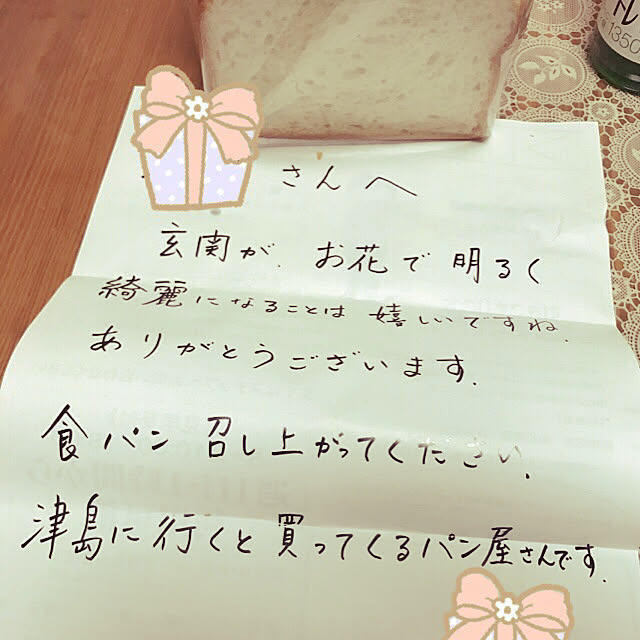 トレ
¥1350
さんへ
玄関が、お花で明るく
綺麗になることは嬉しいですね、
ありがとうございます。
食パン召し上がってください、
津島に行くと買ってくるパン屋さんです。